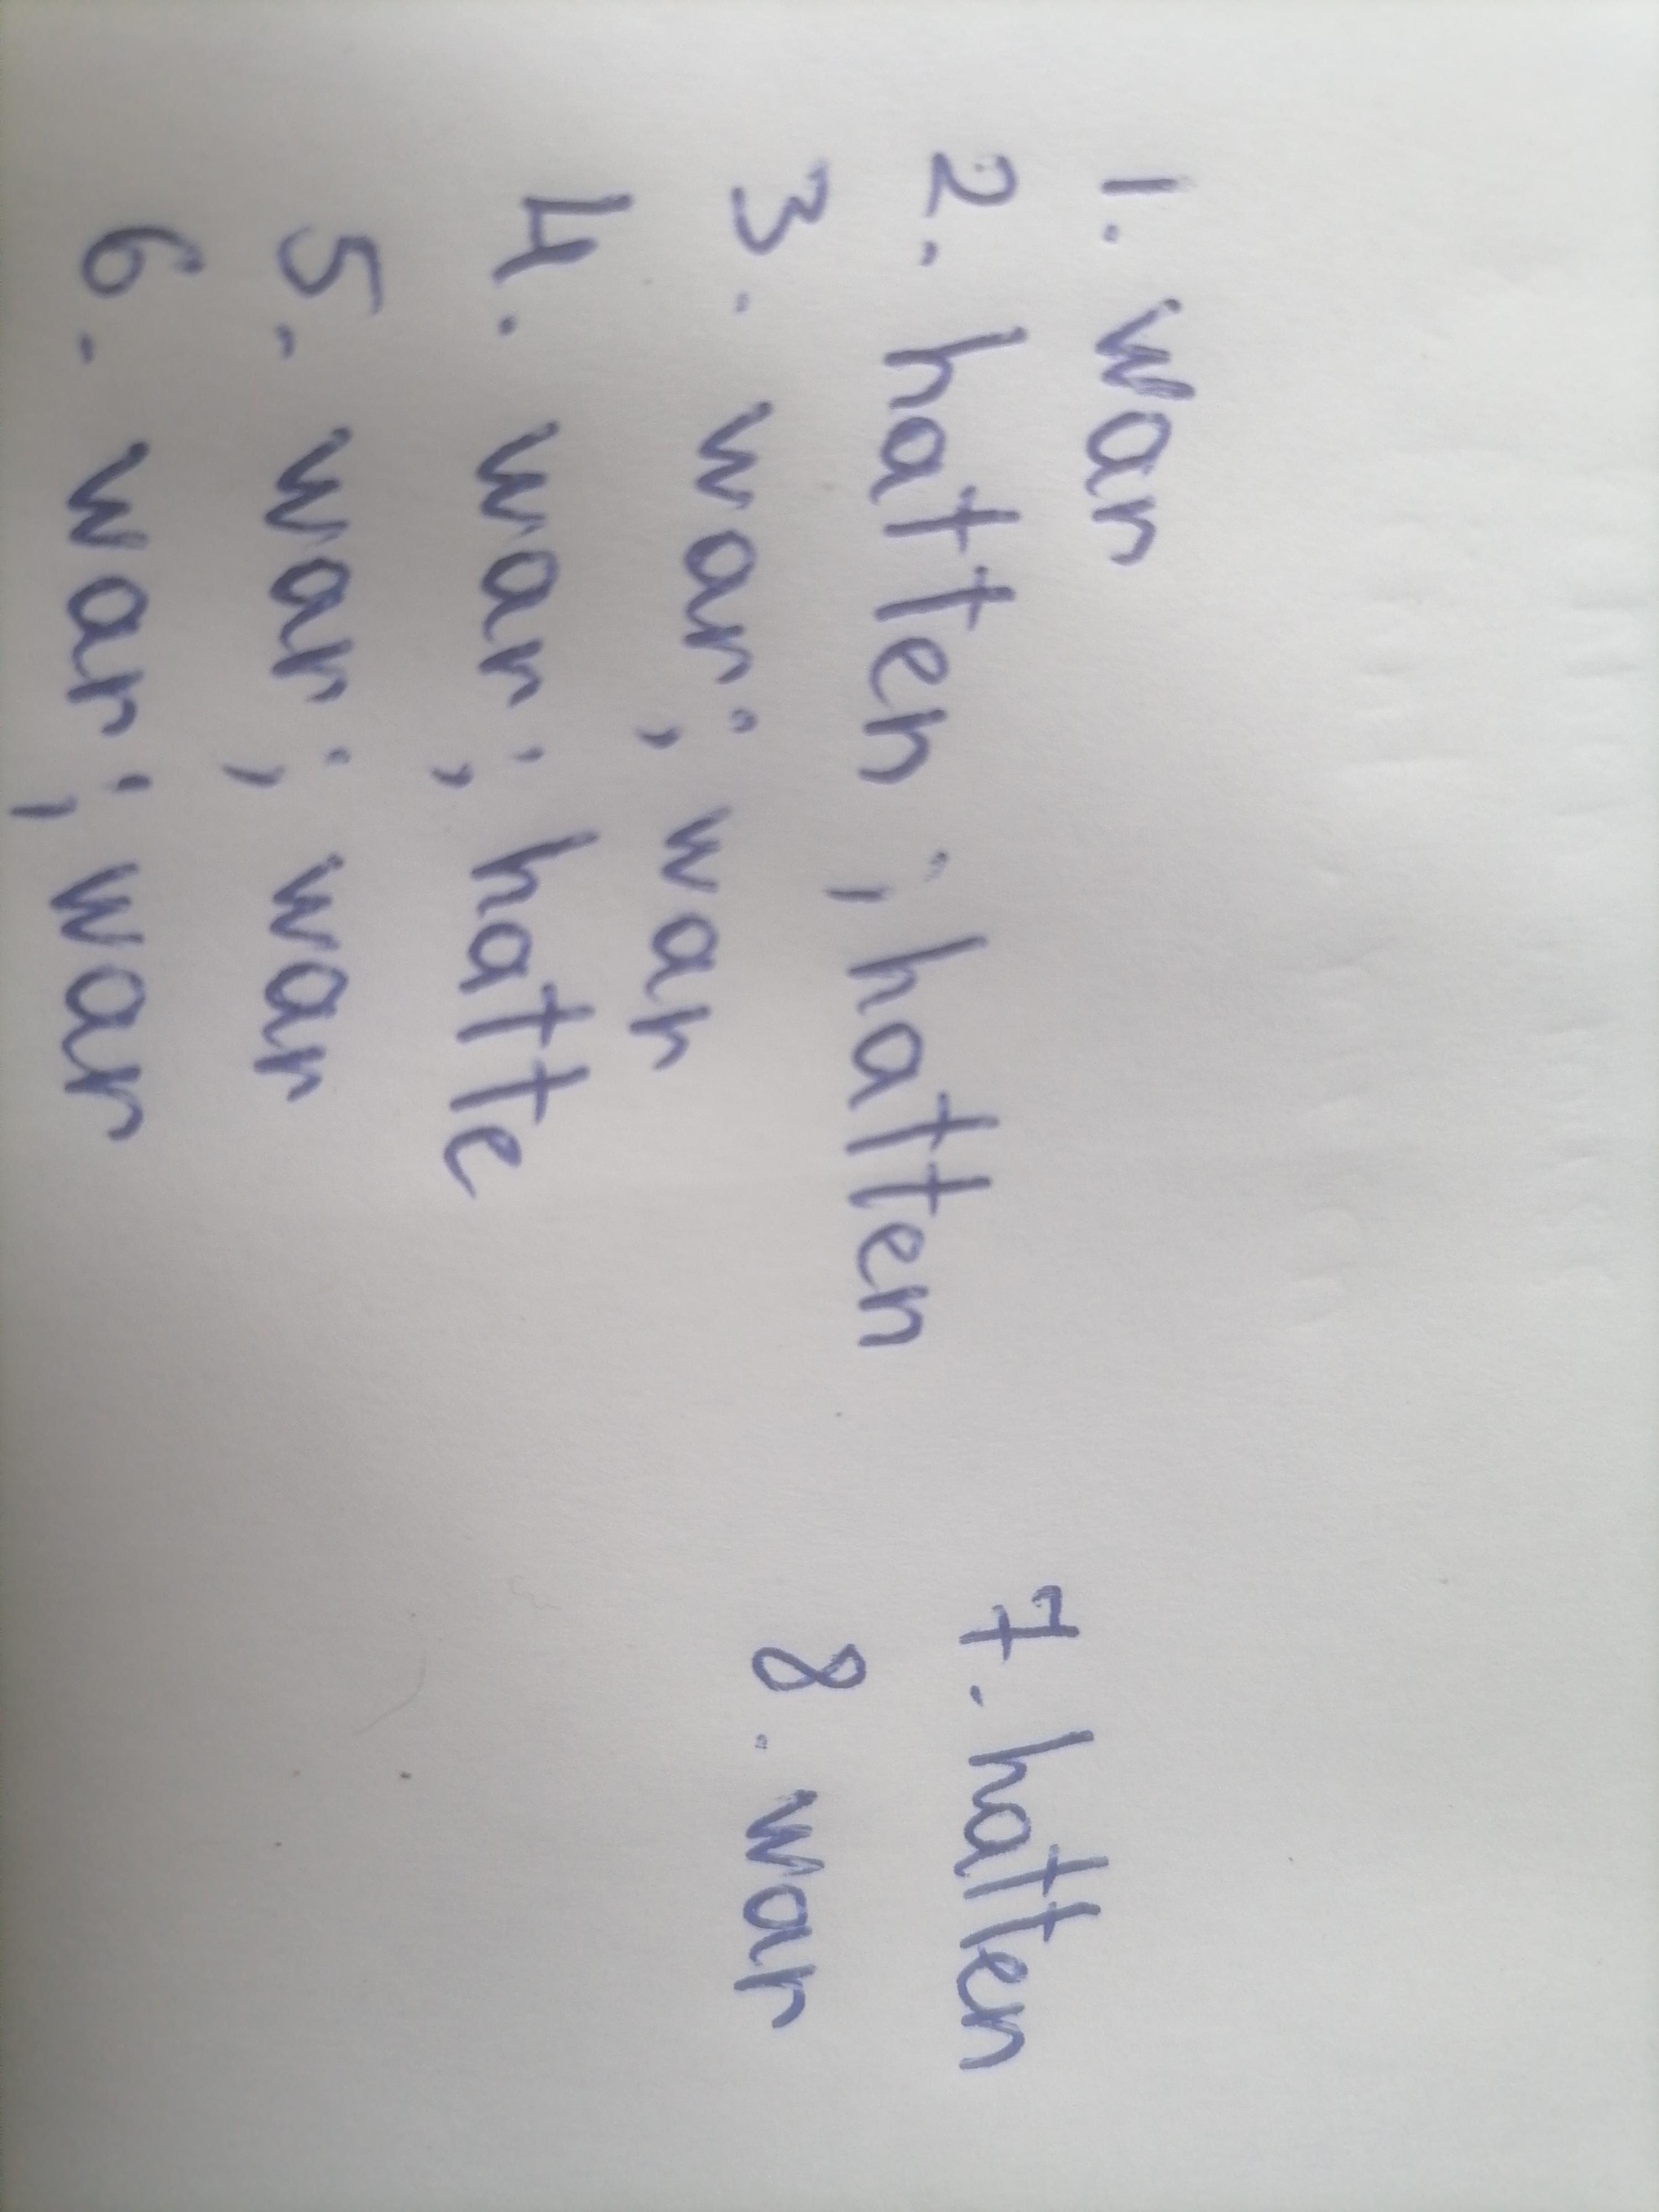 1. war
2. hatten ; hatten
3. war ; war
4. war ; hatte
5. war ; war
6. war ; war
7. hatten
8. war